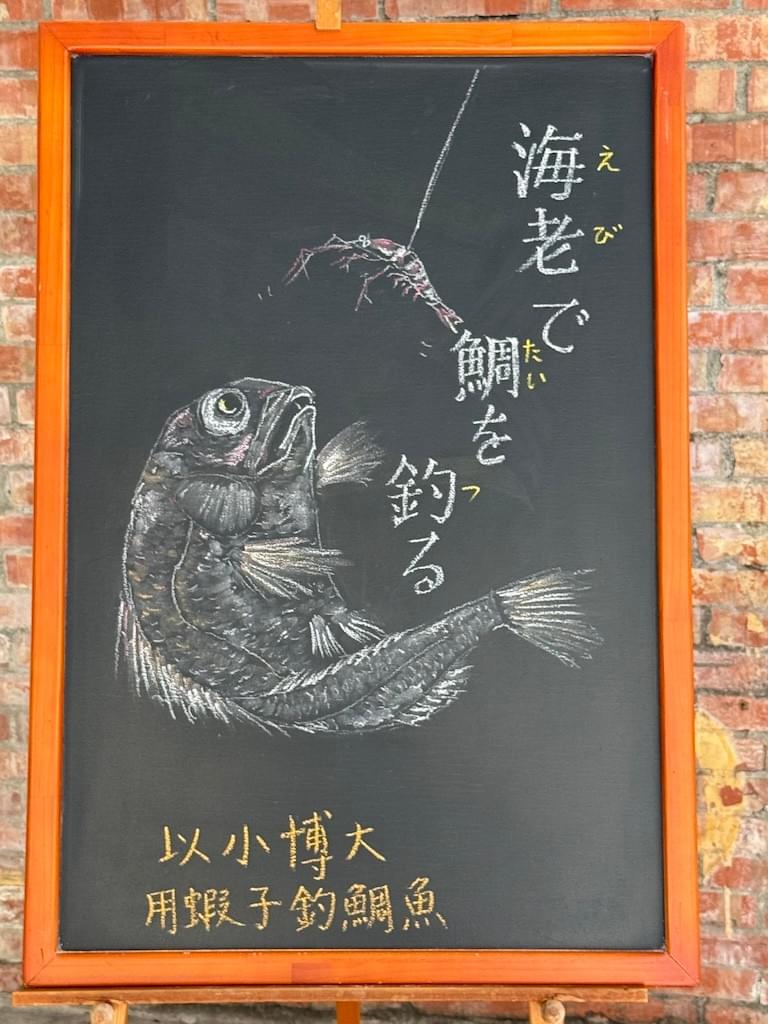 海老で
えび
鯛を
たい
釣る
つ
以小博大
用蝦子釣鯛魚